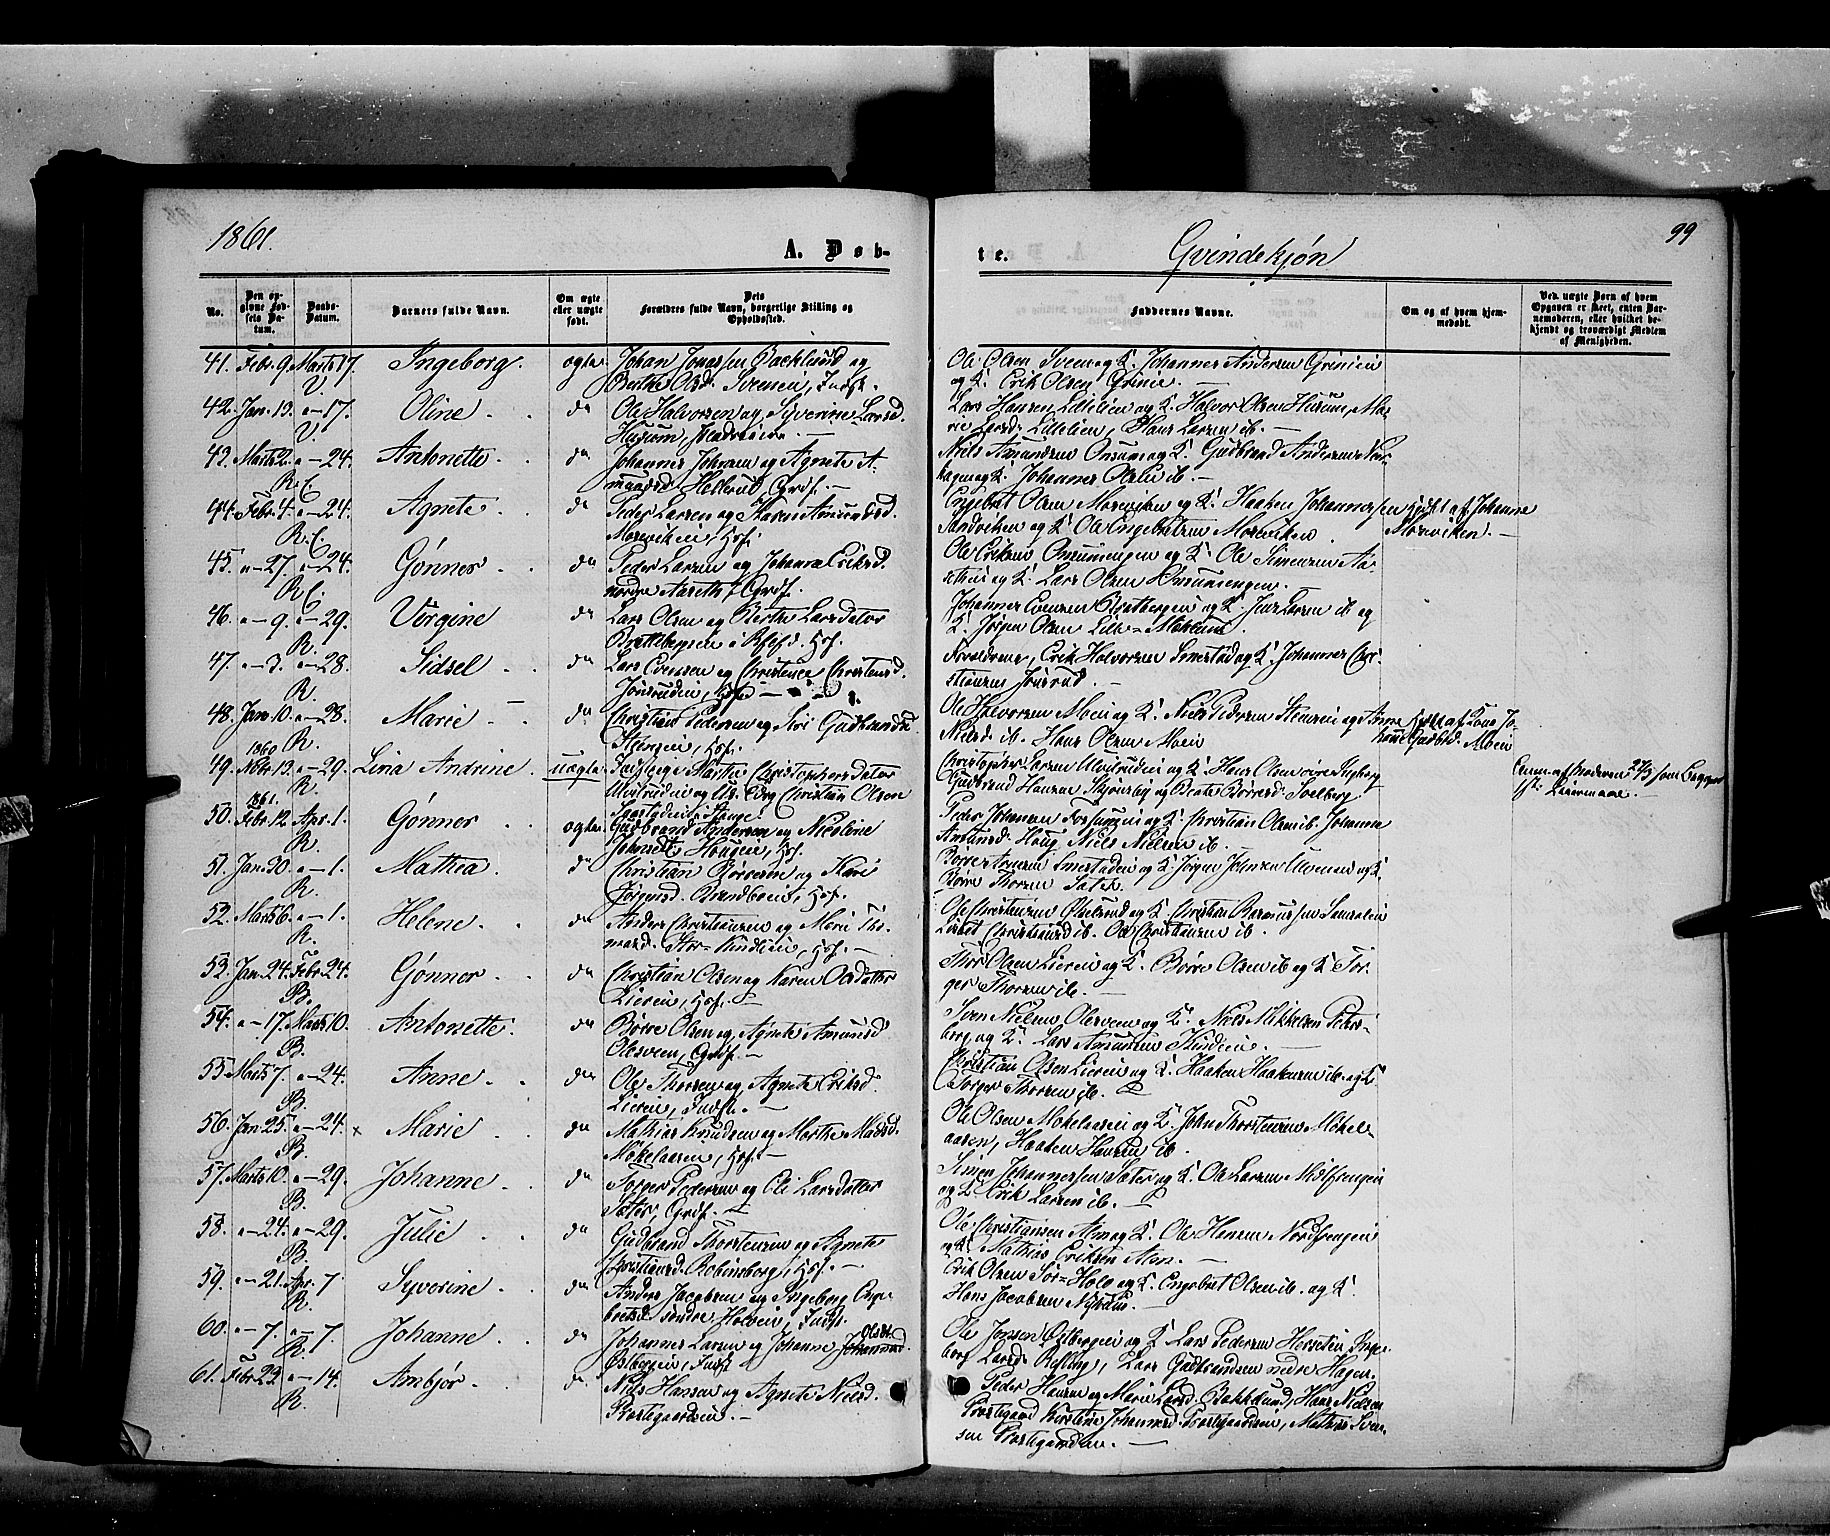 1861.
A. Døb-
te.
Qvindekjøn
99
No.
Den op-
givne Fød-
sels Da-
tum.
Daabs-
Datum.
Barnets fulde Navn.
Om ægte
eller uægte
født.
Dets
Forældres fulde Navn, borgerlige Stilling og
Opholdssted.
Faddernes Navne.
Om og af hvem hjem-
medøbt.
Ved uægte Børn af hvem
Opgaven er skeet, enten Bar-
nemoderen, eller hvilket be-
kjendt og troværdigt Medlem
af Menigheden.
41. Febr. 9. Marts 17. Ingeborg. ægte Johan Jonassen Backlund og
V. Berthe Olsd. Sveeneie, Inds.
Ole Olsen Sveen og K. Johannes Andersen Grinieie
og K. Erik Olsen Grinie.
42. Jan. 13. "-17. Oline. do Ole Halvorsen og Syverine Larsd.
V. Husum,
Lars Hansen Lillelien og K. Halvor Olsen Husum, Ma-
rie Larsd. Lillelien, Hans Larsen ib.
43. Marts 2. "-24. Antonette do Johannes Johnsen og Agnete A-
R. C. mundsd. Hellerud, Grdf.
Niels Amundsen Onsum og K. Gudbrand Andersen
og K. Johannes Olsen ib.
44. Febr. 4. "-24. Agnete. do Peder Larsen og Karen Amundsd.
R. C. Morviken, Hsf.
Engebret Olsen Morviken og K. Haaken Johannessen
Sandviken og K. Ole Engebretsen Morviken.
af Johanne
Morviken.
45. "-27. "-24. Gønner do Peder Larsen og Johanne Eriksd.
R. C. nordre Aaseth, Grdf.
Ole Eriksen Onsumengen og K. Ole Simensen Aa-
setheie og K. Lars Olsen Onsumengen.
46. "-9. "-29. Virgine do Lars Olsen og Berthe Larsdatter
R. Hsf.
Johannes Evensen Bratbergeie og K. Jens Larsen ib og
K. Jørgen Olsen Lille-
47. "-3. "-28. Sidsel do Lars Evensen og Christence Christensd.
R. Jonsrudeie, Hsf.
Forældrene, Erik Halvorsen Smestad og K. Johannes Chri-
stiansen Jonsrud.
48. Jan. 10. "-28. Marie do Christian Pedersen og Siri Gudbrandsd.
R. Stenseie, Hsf.
Ole Halvorsen Moeie og K. Niels Pedersen Stenseie og Anne
Nielsd. ib. Hans Olsen Moeie
af Jo-
hanne Gudbrd. Moeie
1860
49. Nobr. 13. "-29. Lina Andrine. uægte Marthe Christophersdatter
R. Ulvitrudeie og Christian Olsen
Stange.
Christopher Larsen Ulvitrudeie og K. Hans Olsen Ingeborg
Gudbrand Hansen Skjønsby og Beate Børresd. Solberg.
af Moderen 27/3 som
Leiermaal.
1861.
50. Febr. 12. Apr. 1. Gønner ægte Gudbrand Andersen og Nicoline
R. Johnsd. Hougeie, Hsf.
Peder Johansen og K. Christian Olsen ib. Johanne
Amundsd. Houg. Niels Nielsen ib.
51. Jan. 30. "-1. Mathea. do Christian Børresen og Kari
R. Jørgensd. Hsf.
Børre Smestadeie og K. Jørgen Jensen Ulvenes og K.
Børre Thorsen Sater
52. Marts 6. "-1. Helene do Anders Christiansen og Mari Tho-
R. masd. Stor-Kindlieie, Hsf.
Ole Christensen og K. Christian Rasmussen
Lisbet Christensd. ib. Ole Christensen ib.
53. Jan. 24. Febr. 24. Gønner do Christian Olsen og Karen Olsdatter
B. Liereie, Hsf.
Thor Olsen Liereie og K. Børre Olsen ib og K. Tor-
ger Thorsen ib.
54. "-17. Marts 10. Antonette. do Børre Olsen og Agnete Amundsd.
B. Olesveen, Grdf.
Sven Nielsen Olesveen og K. Niels Mikkelsen Peders-
berg og K. Lars Amundsen Kindlieie.
55. Marts 7. "-24. Anne do Ole Thorsen og Agnete Eriksd.
B. Liereie, Inds.
Christian Olsen Liereie og K. Haaken Haakensen ib. og K.
Torger Thorsen ib.
56. Jan. 25. "-24. x Marie do Mathias Knudsen og Marthe Madsd.
B. Mokelaaseie, Hsf.
Ole Olsen Mokelaaseie og K. John Thorstensen Mokel-
aasen, Haaken Hansen ib
57. Marts 10. "-29. Johanne. do Torger Pedersen og Oli Larsdatter
B. Sater, Grdf.
Simen Johannessen Sater og K. Ole Larsen
og K. Erik Larsen ib.
58. "-24. "-29. Julie do Gudbrand Thorstensen og Agnete
B. Christiansd. Robinsborg, Hsf.
Ole Christiansen Alm og K. Ole Hansen Nordsengeie
og K. Mathias Eriksen Alm.
59. "-21. Apr. 7 Syverine do Anders Jacobsen og Ingeborg Enge-
R. bretsd. søndre Holoeie, Inds.
Erik Olsen Sør-Holo og K. Engebret Olsen ib. og K.
Hans Jacobsen
60. "-7. "-7. Johanne. do Johannes Larsen og Johanne Johannesd. Olsdt.
R. Østbergeie, Inds.
Ole Jensen Østbergeie og K. Lars Pedersen Inge-
borg Larsd. Lars Gudbrandsen nedre Hagen.
61. Febr. 23. "-14. Ambjør. do Niels Hansen og Agnete Nielsd.
R. Prestegaardseie.
Peder Hansen og Marie Larsd. Bakkelund, Hans Nielsen
Prestegaard Kirstine Johannesd. Prestegaardseie, Mathias Sven-
sen Prestegaardseie.